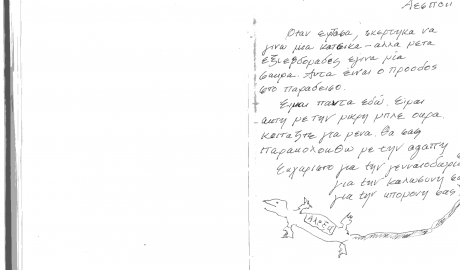 Δεσποι
Οταν εφτασα, σκεφτηκα να
γινω μια κατσικα - αλλα μετα
εξι εβδομαδες εγινα μία
σαυρα. Αυτα ειναι ο προοδος
στο παραδεισο.
Ειμαι παντα εδώ. Ειμαι
αυτη με την μικρη μπλε ουρα.
Κοιταξτε για μενα. Θα σας
παρακολουθω με την αγαπη
Ευχαριστω για την
για την καλωσυνη
για την υπομονη σας
ΑΛΕΞΗ